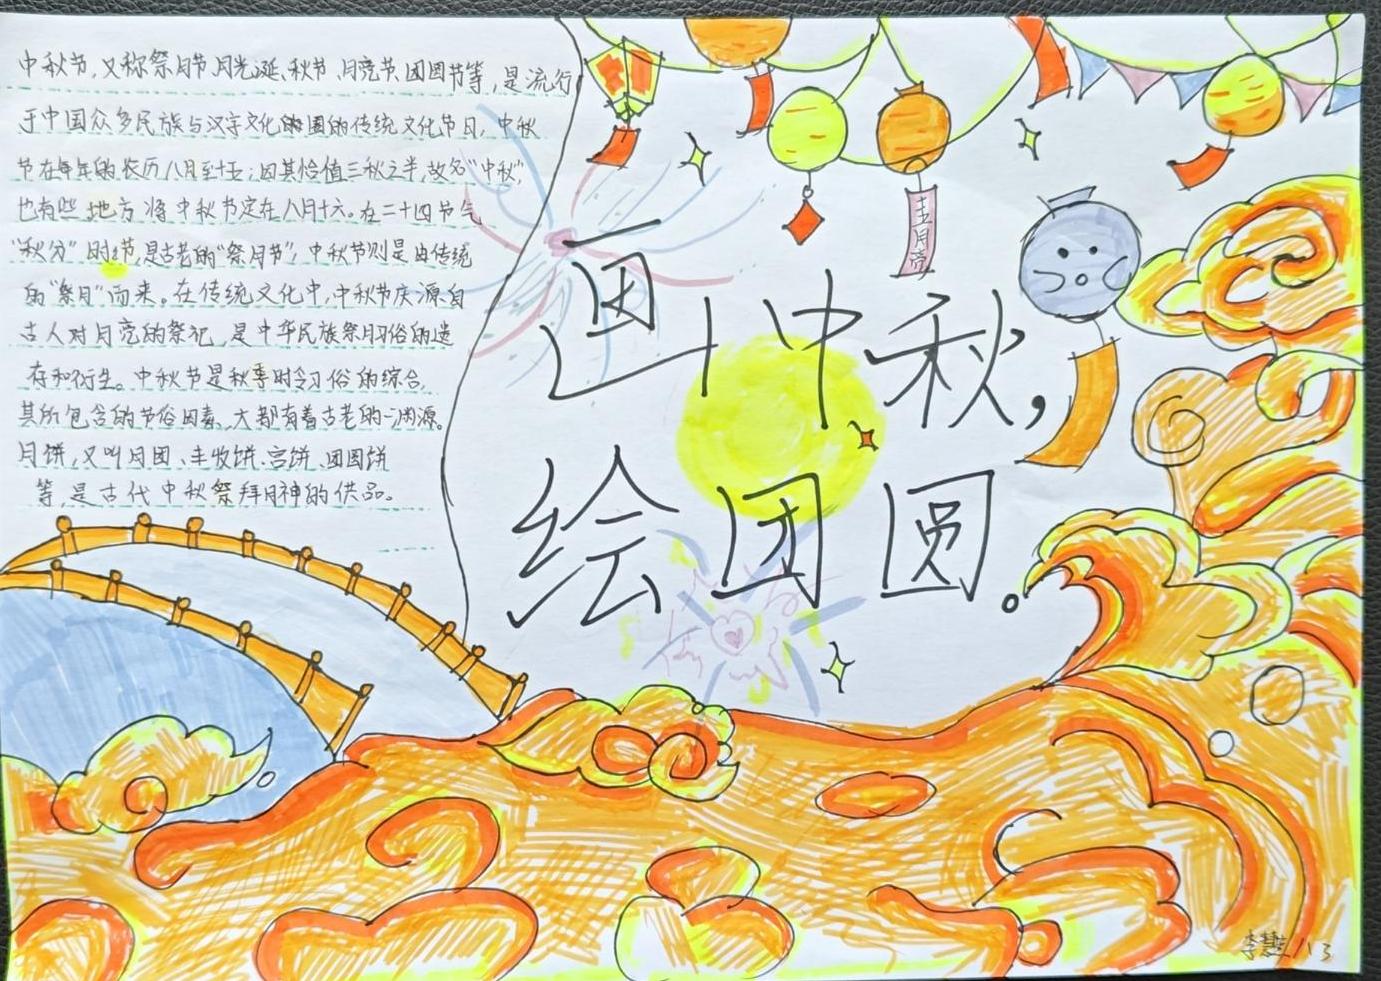 中秋节,又称祭月节、月光诞、秋节、月亮节、团圆节等,是流行
于中国众多民族与汉字文化圈的传统文化节日,中秋
节在每年的农历八月至十五;因其恰值三秋之半,故名“中秋”,
也有些地方将中秋节定在八月十六。在二十四节气
“秋分”时节,是古老的“祭月节”,中秋节则是由传统
的“祭月”而来。在传统文化中,中秋节庆源自
古人对月亮的祭祀,是中华民族祭月习俗的遗
存和衍生。中秋节是秋季时令习俗的综合,
其所包含的节俗因素,大都有着古老的渊源。
月饼,又叫月团、丰收饼、宫饼、团圆饼
等,是古代中秋祭拜月神的供品。
画中秋,
绘团圆。
八3